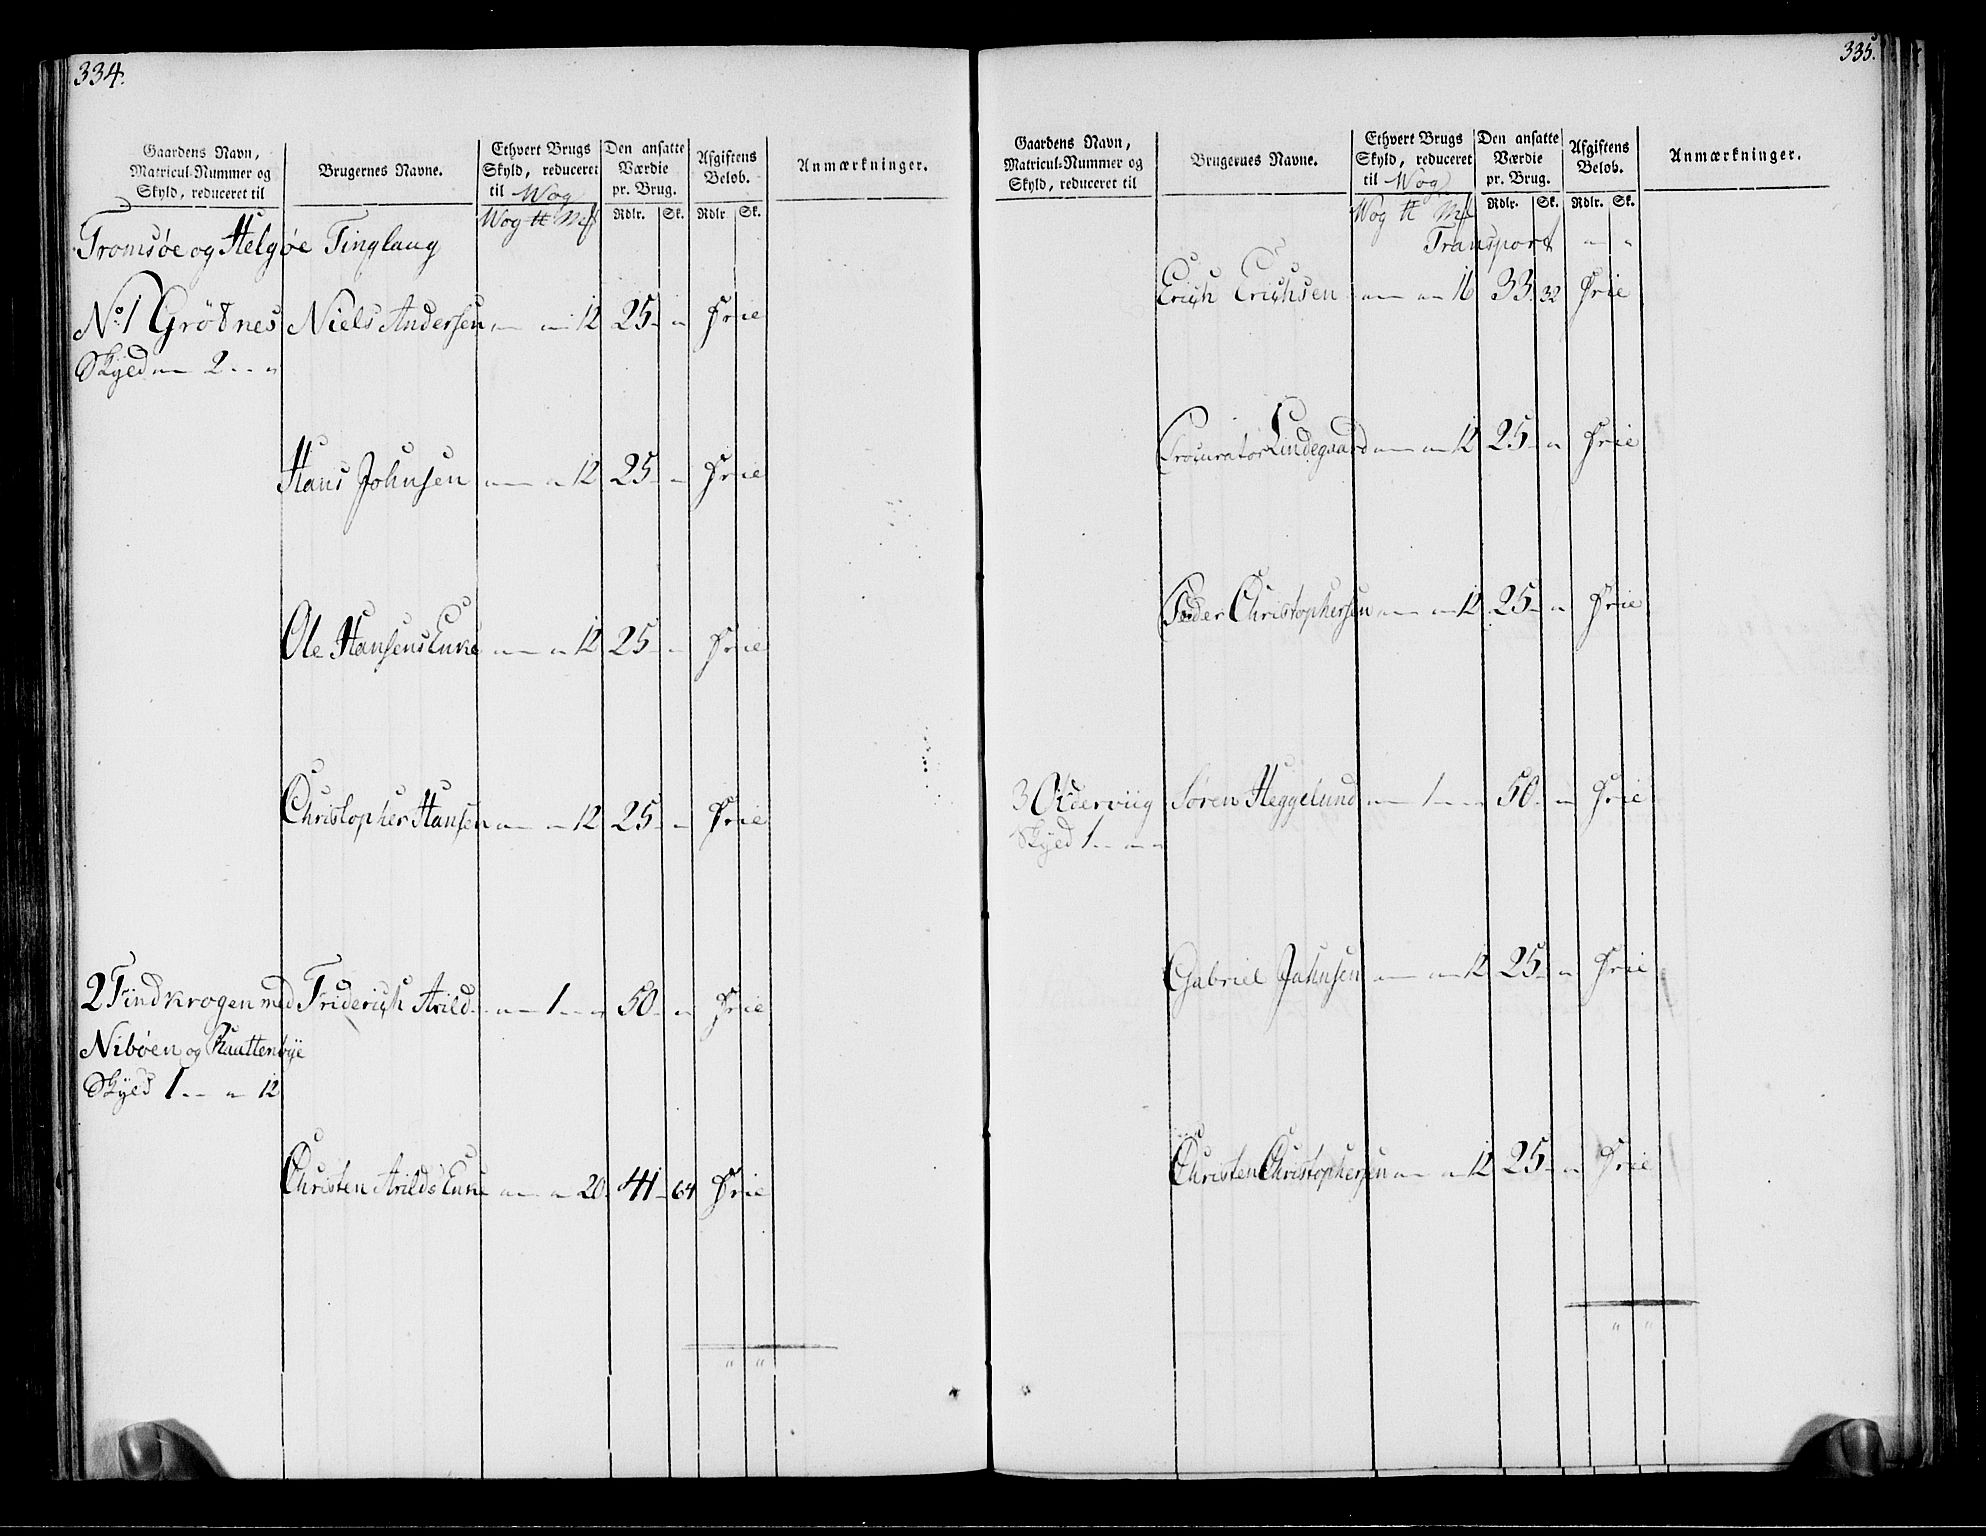 334.
Gaardens Navn, Matricul-Nummer og Skyld, reduceret til
Brugernes Navne.
Ethvert Brugs Skyld, reduceret til Wog
Den ansatte Værdie pr. Brug.
Afgiftens Belob.
Anmærkninger.
Wog ℔ Mk Rdlr. Sk. Rdlr Sk.
Tromsøe og Helgøe Tinglaug
No. 1 Grötnes Niels Andersen " " 12 25 - " Frie
Skyld " 2 - - "
Hans Johnsen " " 12 25 - " Frie
Ole Hansens Enke " " 12 25 - " Frie
Christopher Hansen " " 12 25 - " Frie
2 Findkrogen med Friderich Arild " 1 - " 50 - " Frie
Nibøen og
Skyld 1 - - " 12
Christen Arilds Enke " " 20 41 - 64 Frie
" "
335.
Gaardens Navn, Matricul-Nummer og Skyld, reduceret til
Brugernes Navne.
Ethvert Brugs Skyld, reduceret til Wog
Den ansatte Værdie pr. Brug.
Afgiftens Belob.
Anmærkninger.
Wog ℔ Mk Rdlr. Sk. Rdlr. Sk.
Transport " "
Erich Erichsen " " 16 33 32 Frie
Procurator Lindegaard " " 12 25 - " Frie
Peder Christophersen " " 12 25 - " Frie
3 Olderviig Søren Heggelund " 1 - " 50 - " Frie
Skyld 1 - - " "
Gabriel Jahnsen " " 12 25 - " Frie
Christen Christophersen " " 12 25 - " Frie
" "